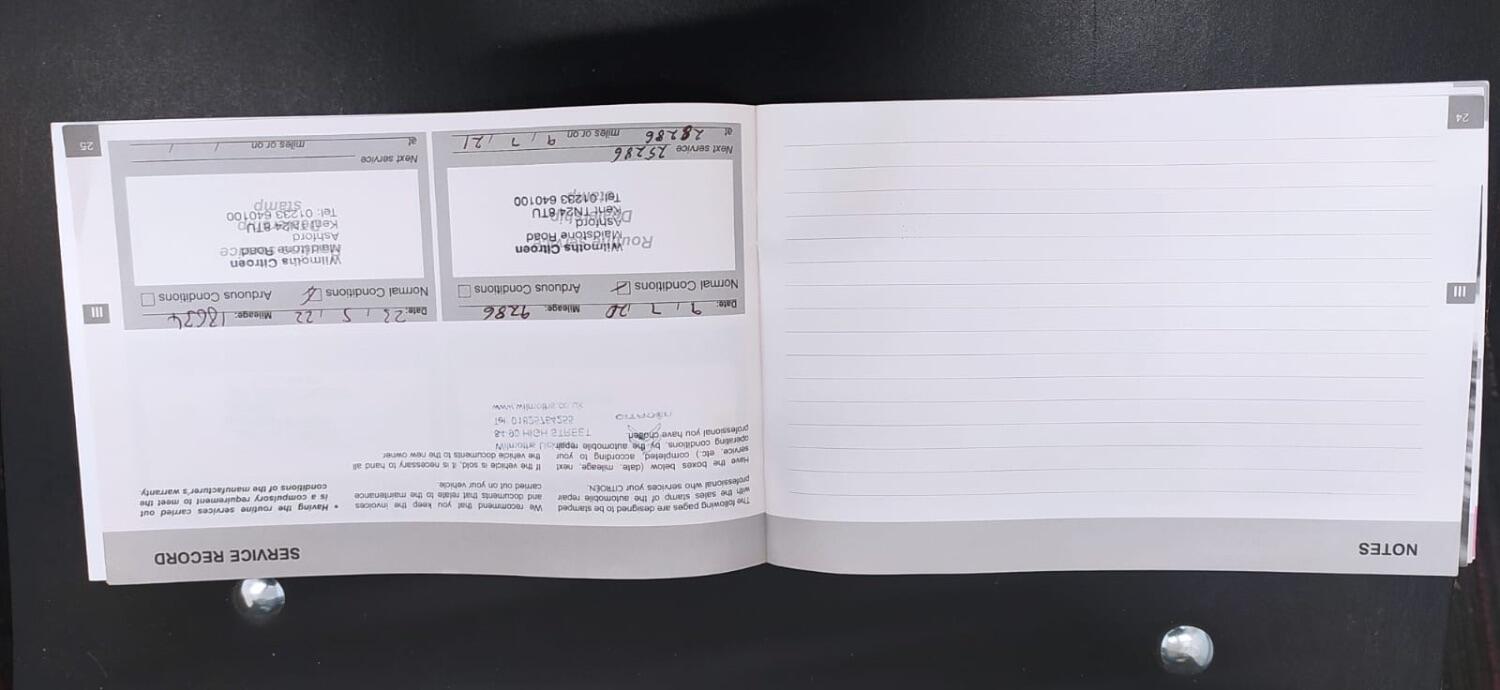 NOTES
III
24
SERVICE RECORD
The following pages are designed to be stamped
with the sales stamp of the automobile repair
professional who services your CITROËN.
Have the boxes below (date, mileage, next
service, etc.) completed, according to your
operating conditions, by the automobile repair
professional you have chosen.
We recommend that you keep the invoices
and documents that relate to the maintenance
carried out on your vehicle.
If the vehicle is sold, it is necessary to hand all
the vehicle documents to the new owner.
• Having the routine services carried out
is a compulsory requirement to meet the
conditions of the manufacturer's warranty.
84-90 HIGH STREET
Tel: 01825764255
www.wilmoths.co.uk
CITROËN
Date: 9 / 7 / 20 Mileage: 9286
Normal Conditions Arduous Conditions
Routine service
Dealership
stamp
Wilmoths Citroen
Maidstone Road
Ashford
Kent TN24 8TU
Tel: 01233 640100
Next service 25286
at 28286 miles or on 9 / 7 / 21
Date: 23 / 5 / 22 Mileage: 18634
Normal Conditions Arduous Conditions
stamp
Wilmoths Citroen
Maidstone Road
Ashford
Kent TN24 8TU
Tel: 01233 640100
Next service
at miles or on / /
III
25